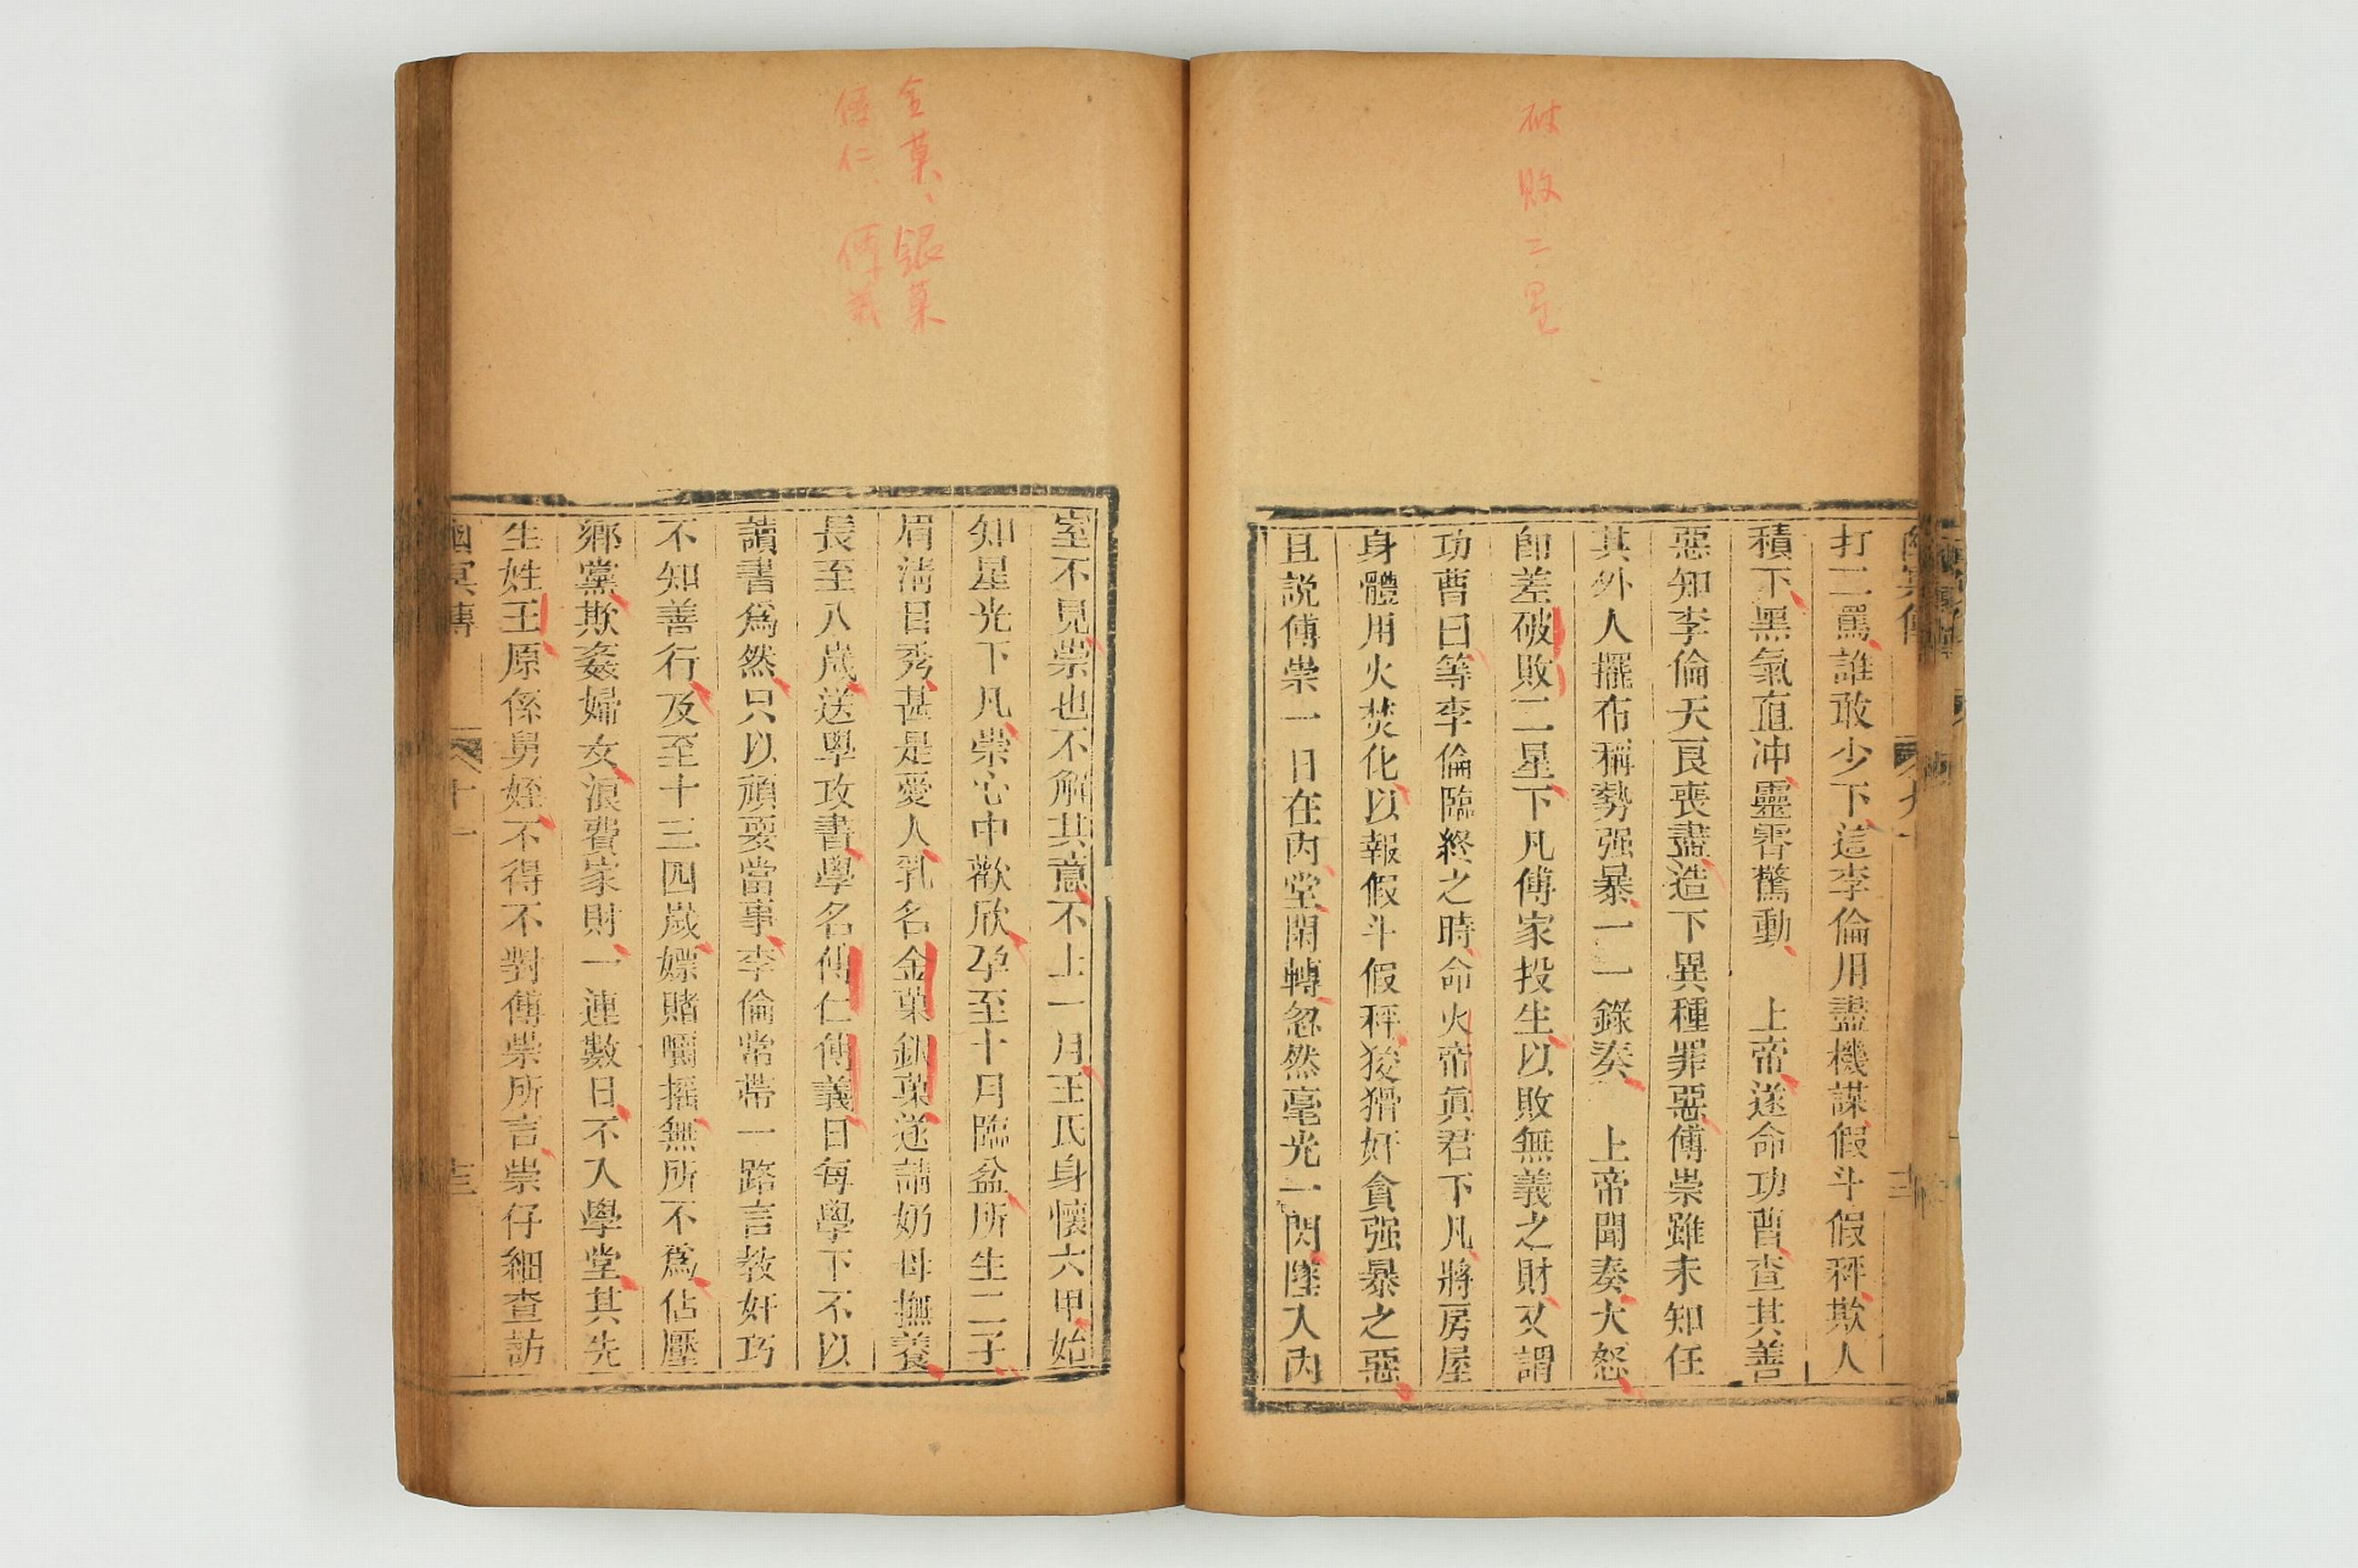 破敗二星
打二罵誰敢少下這李倫用盡機謀假斗假秤欺人
積下黑氣直冲靈霄驚動 上帝遂命功曹查其善
惡知李倫天良喪盡造下異種罪惡傅崇雖未知任
其外人擺布稱勢强暴一一錄奏 上帝聞奏大怒
卽差破敗二星下凡傅家投生以敗無義之財又謂
功曹曰等李倫臨終之時命火帝眞君下凡將房屋
身體用火焚化以報假斗假秤狡猾奸貪强暴之惡
且説傅崇一日在內堂閑轉忽然毫光一閃墜入內
金菓、銀菓
傅仁、傅義
室不見崇也不解其意不上一月王氏身懷六甲始
知星光下凡崇心中歡欣孕至十月臨盆所生二子
眉淸目秀甚是愛人乳名金菓銀菓遂請奶母撫養
長至八歲送學攻書學名傅仁傅義日每學下不以
讀書爲然只以頑耍當事李倫常帶一路言教奸巧
不知善行及至十三四歲嫖賭嚼摇無所不爲佔壓
鄉黨欺姦婦女浪費家財一連數日不入學堂其先
生姓王原係舅姪不得不對傅崇所言崇仔細查訪
幽冥傳 十一